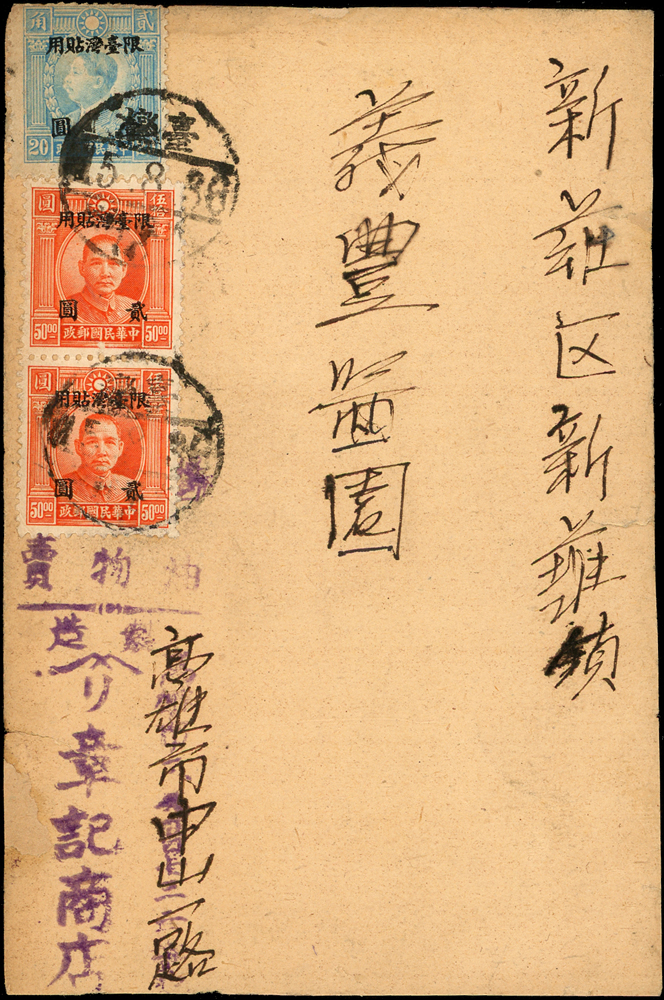 新莊区新莊鎮
義豐園
高雄市中山一路
貳角
限臺灣貼用
圓
20
中華民國郵政
臺灣
5.8.38
伍拾圓
限臺灣貼用
貳圓
50.00 中華民國郵政 50.00
限臺灣貼用
貳圓
50.00 中華民國郵政 50.00
油物賣
製造
リ章記商店